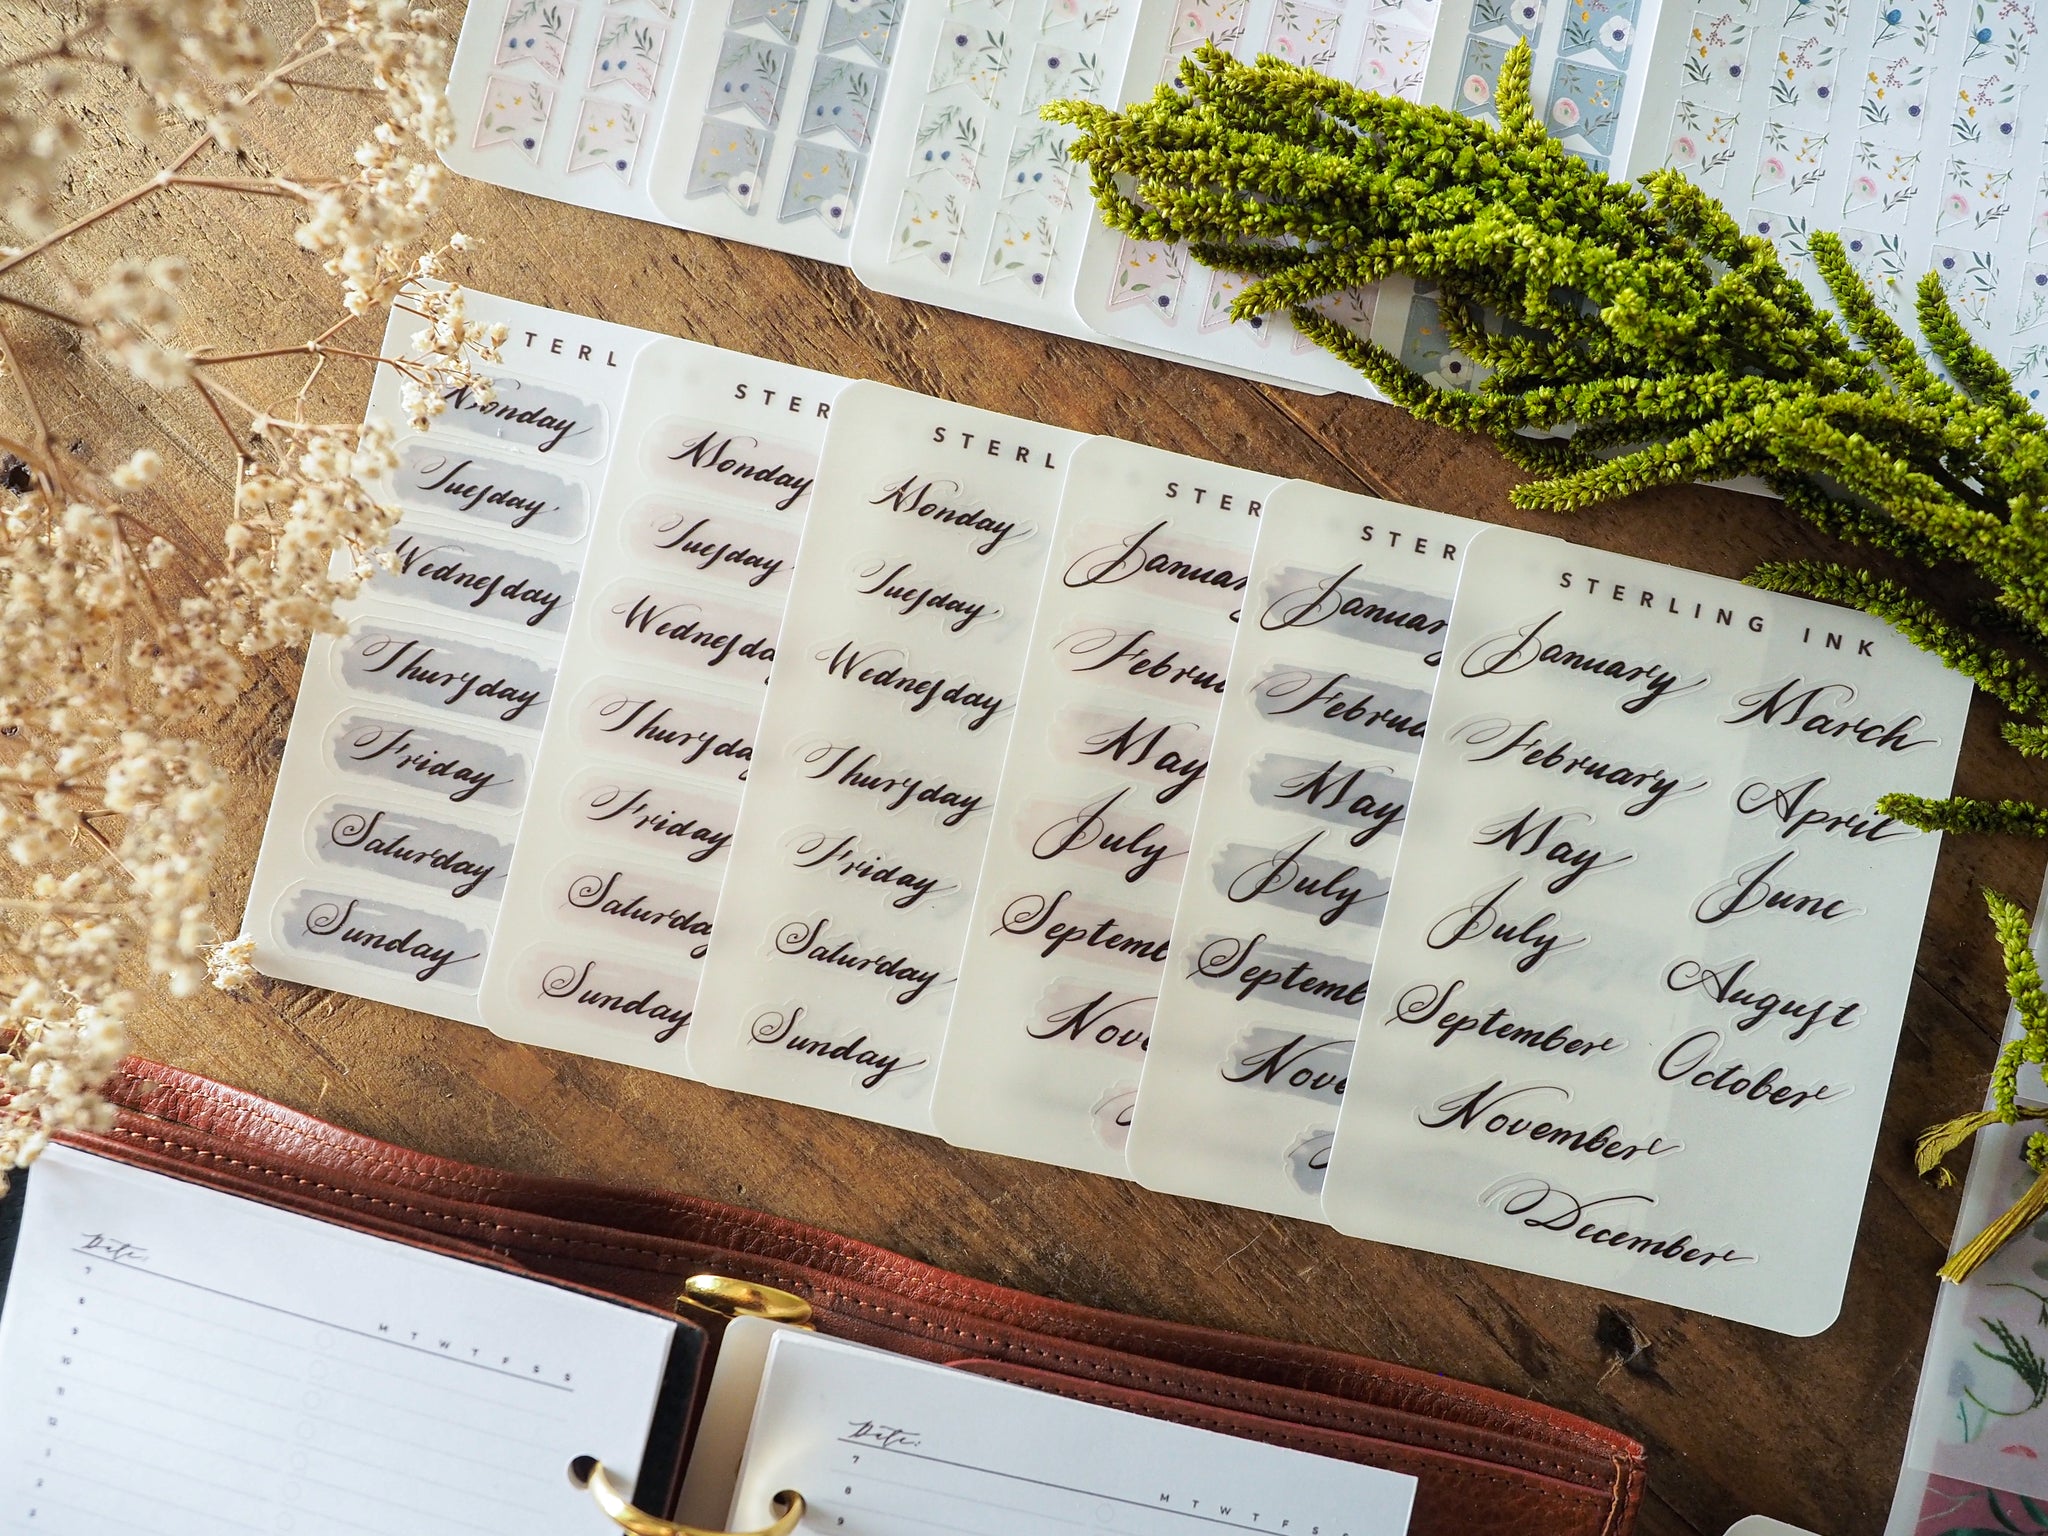 TERL
Monday
Tuesday
Wednesday
Thursday
Friday
Saturday
Sunday
STER
Monday
Tuesday
Wednesda
Thursda
Friday
Saturday
Sunday
STERL
Monday
Tuesday
Wednesday
Thursday
Friday
Saturday
Sunday
STER
Januar
Februa
May
July
Septembe
Nove
STER
Januar
Februa
May
July
Septemb
Nove
STERLING INK
January
March
February
April
May
June
July
August
September
October
November
December
Date:
M T W T F S S
7
8
9
10
11
12
1
2
3
Date:
M T W T F S S
7
8
9